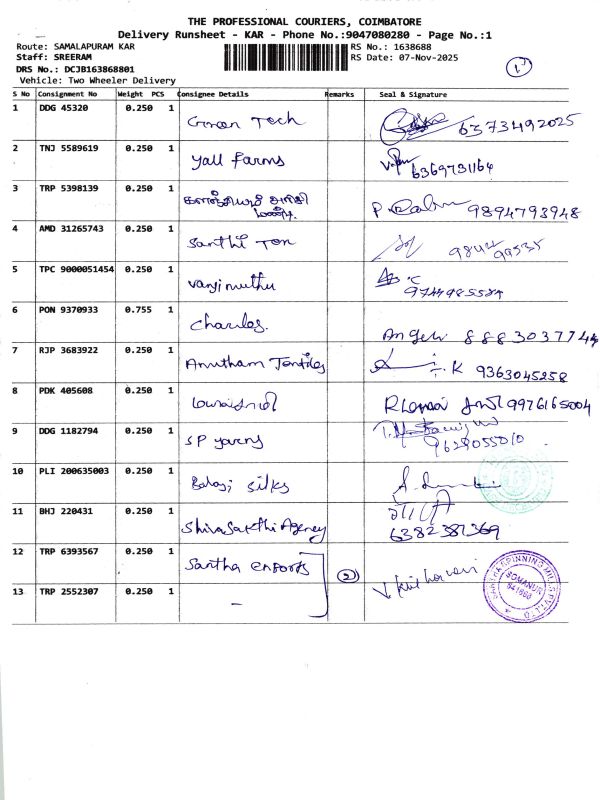 THE PROFESSIONAL COURIERS, COIMBATORE
Delivery Runsheet - KAR - Phone No.:9047080280 - Page No.:1
Route: SAMALAPURAM KAR
RS No.: 1638688
Staff: SREERAM
RS Date: 07-Nov-2025
DRS No.: DCJB163868801
Vehicle: Two Wheeler Delivery
S No Consignment No Weight PCS Consignee Details Remarks Seal & Signature
1 DDG 45320 0.250 1 Green Tech 6373492025
2 TNJ 5589619 0.250 1 Yall Farms 6369731164
3 TRP 5398139 0.250 1 9894793948
4 AMD 31265743 0.250 1 Santhi Tex
5 TPC 9000051454 0.250 1 Vanjimuthu 9744985584
6 PON 9370933 0.755 1 Charles. Angeli 8883037744
7 RJP 3683922 0.250 1 Amutham Textiles K 9363045258
8 PDK 405608 0.250 1 9976165004
9 DDG 1182794 0.250 1 SP yarns 9629055010
10 PLI 200635003 0.250 1 Balaji silks
11 BHJ 220431 0.250 1 Shiva Sakthi Agency 6382387369
12 TRP 6393567 0.250 1 Santha exports 2
13 TRP 2552307 0.250 1 –
SPINNING MILLS
SOMANUR
641668